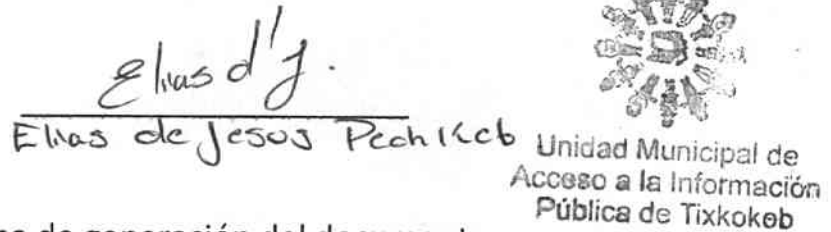 Elias d'J.
Elias de Jesus Pech Keb
Unidad Municipal de
Acceso a la Información
Pública de Tixkokob
de generación del